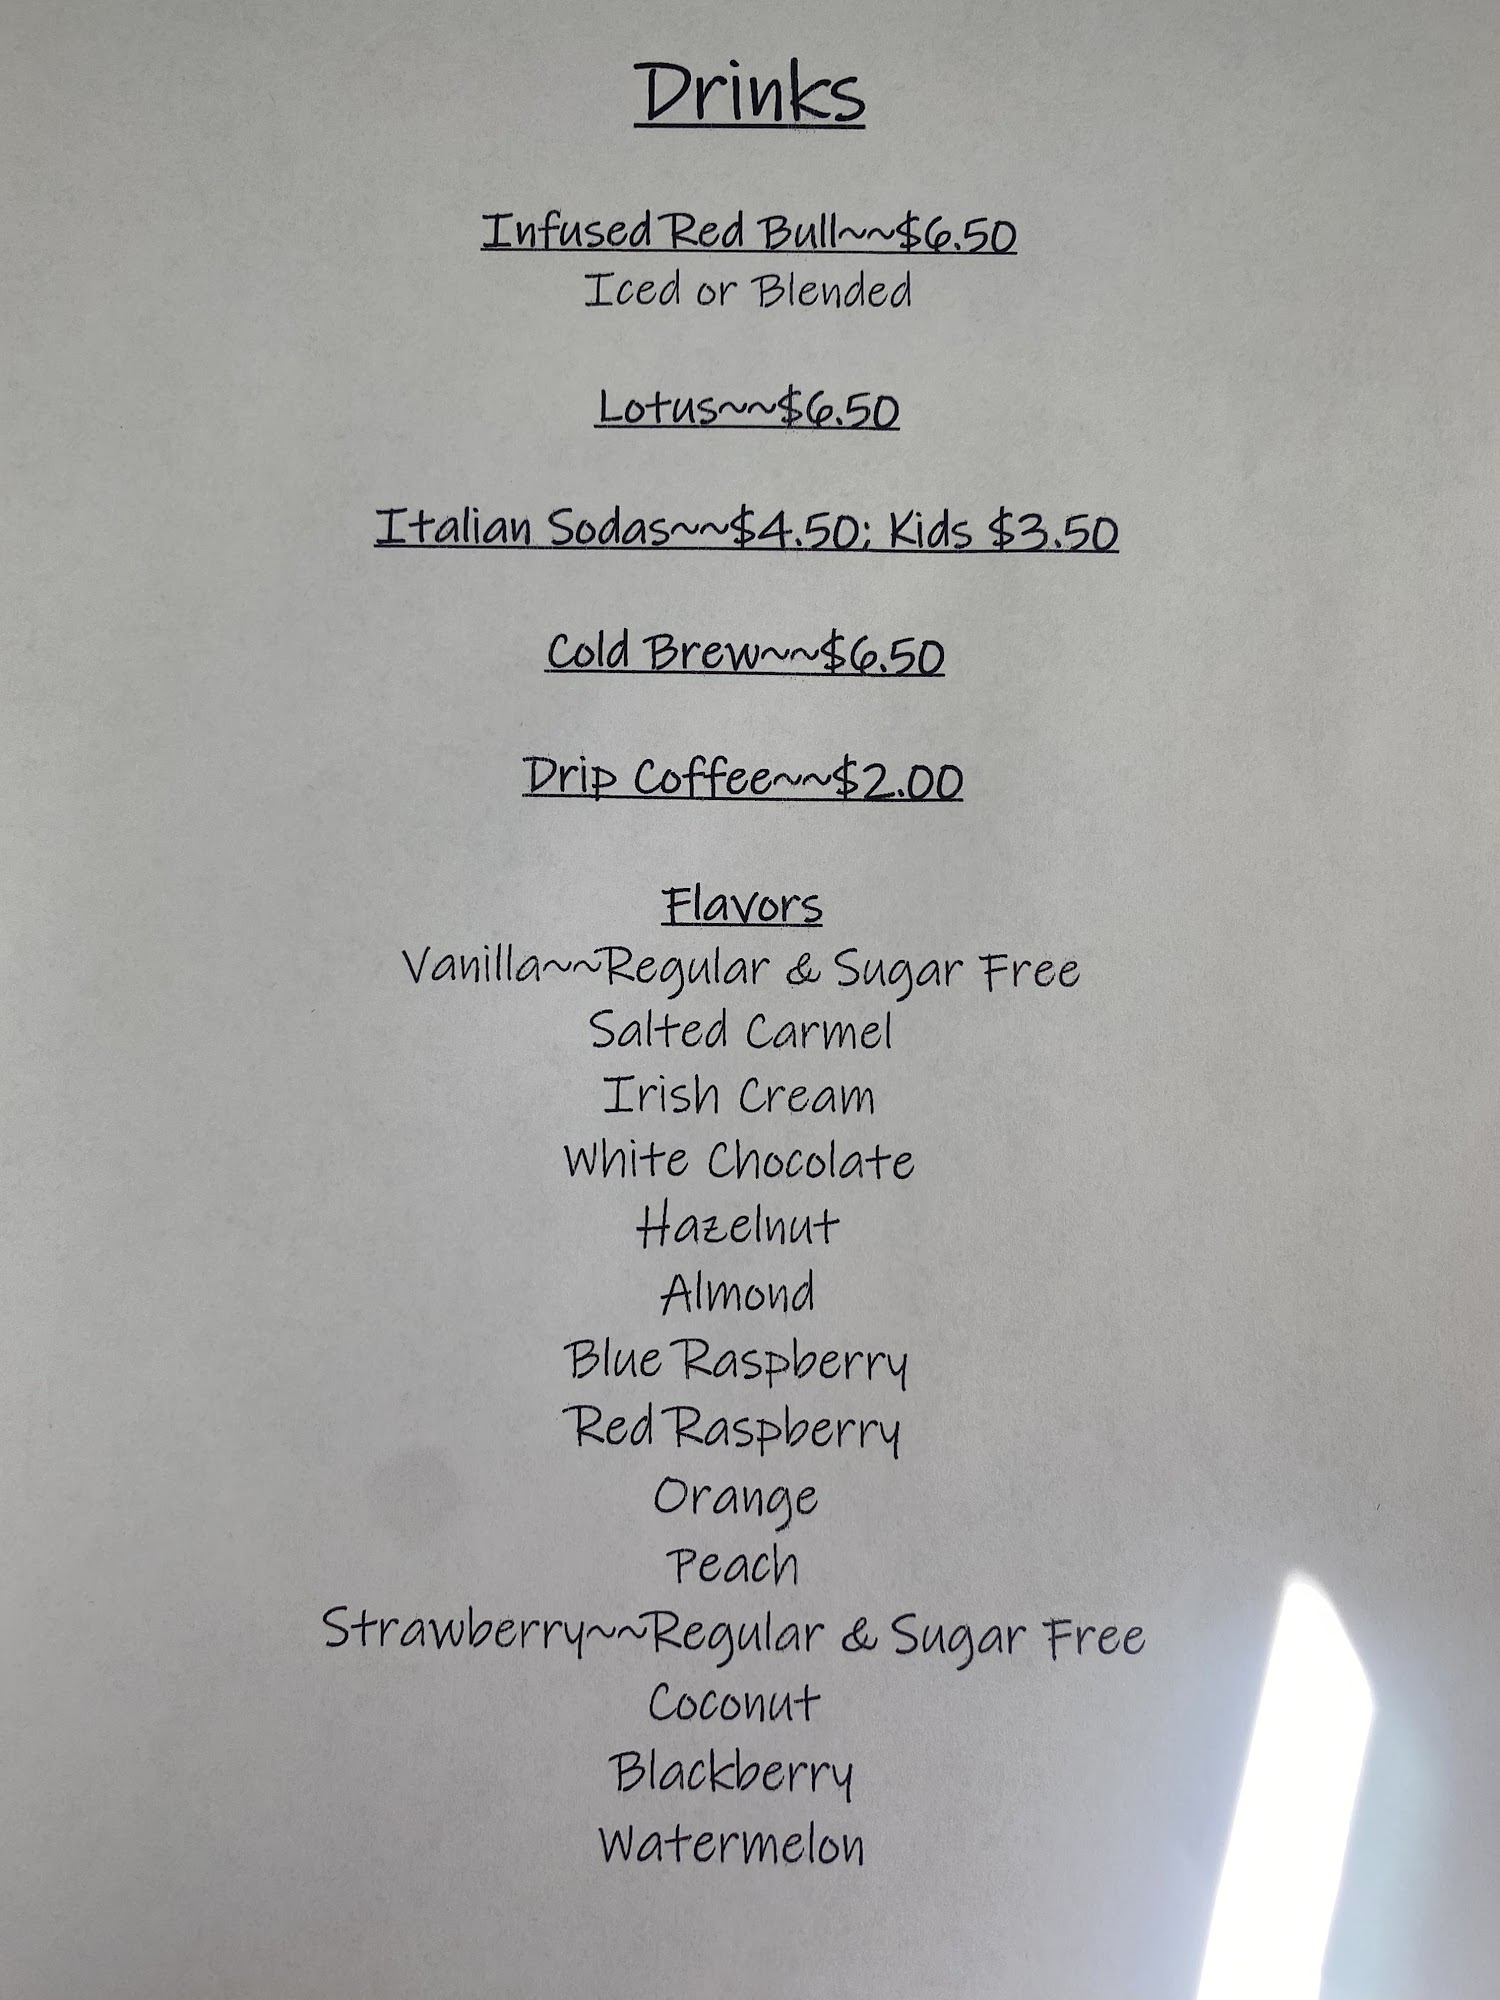 Drinks
Infused Red Bull~~$6.50
Iced or Blended
Lotus~~$6.50
Italian Sodas~~$4.50; Kids $3.50
Cold Brew~~$6.50
Drip Coffee~~$2.00
Flavors
Vanilla~~Regular & Sugar Free
Salted Carmel
Irish Cream
White Chocolate
Hazelnut
Almond
Blue Raspberry
Red Raspberry
Orange
Peach
Strawberry~~Regular & Sugar Free
Coconut
Blackberry
Watermelon